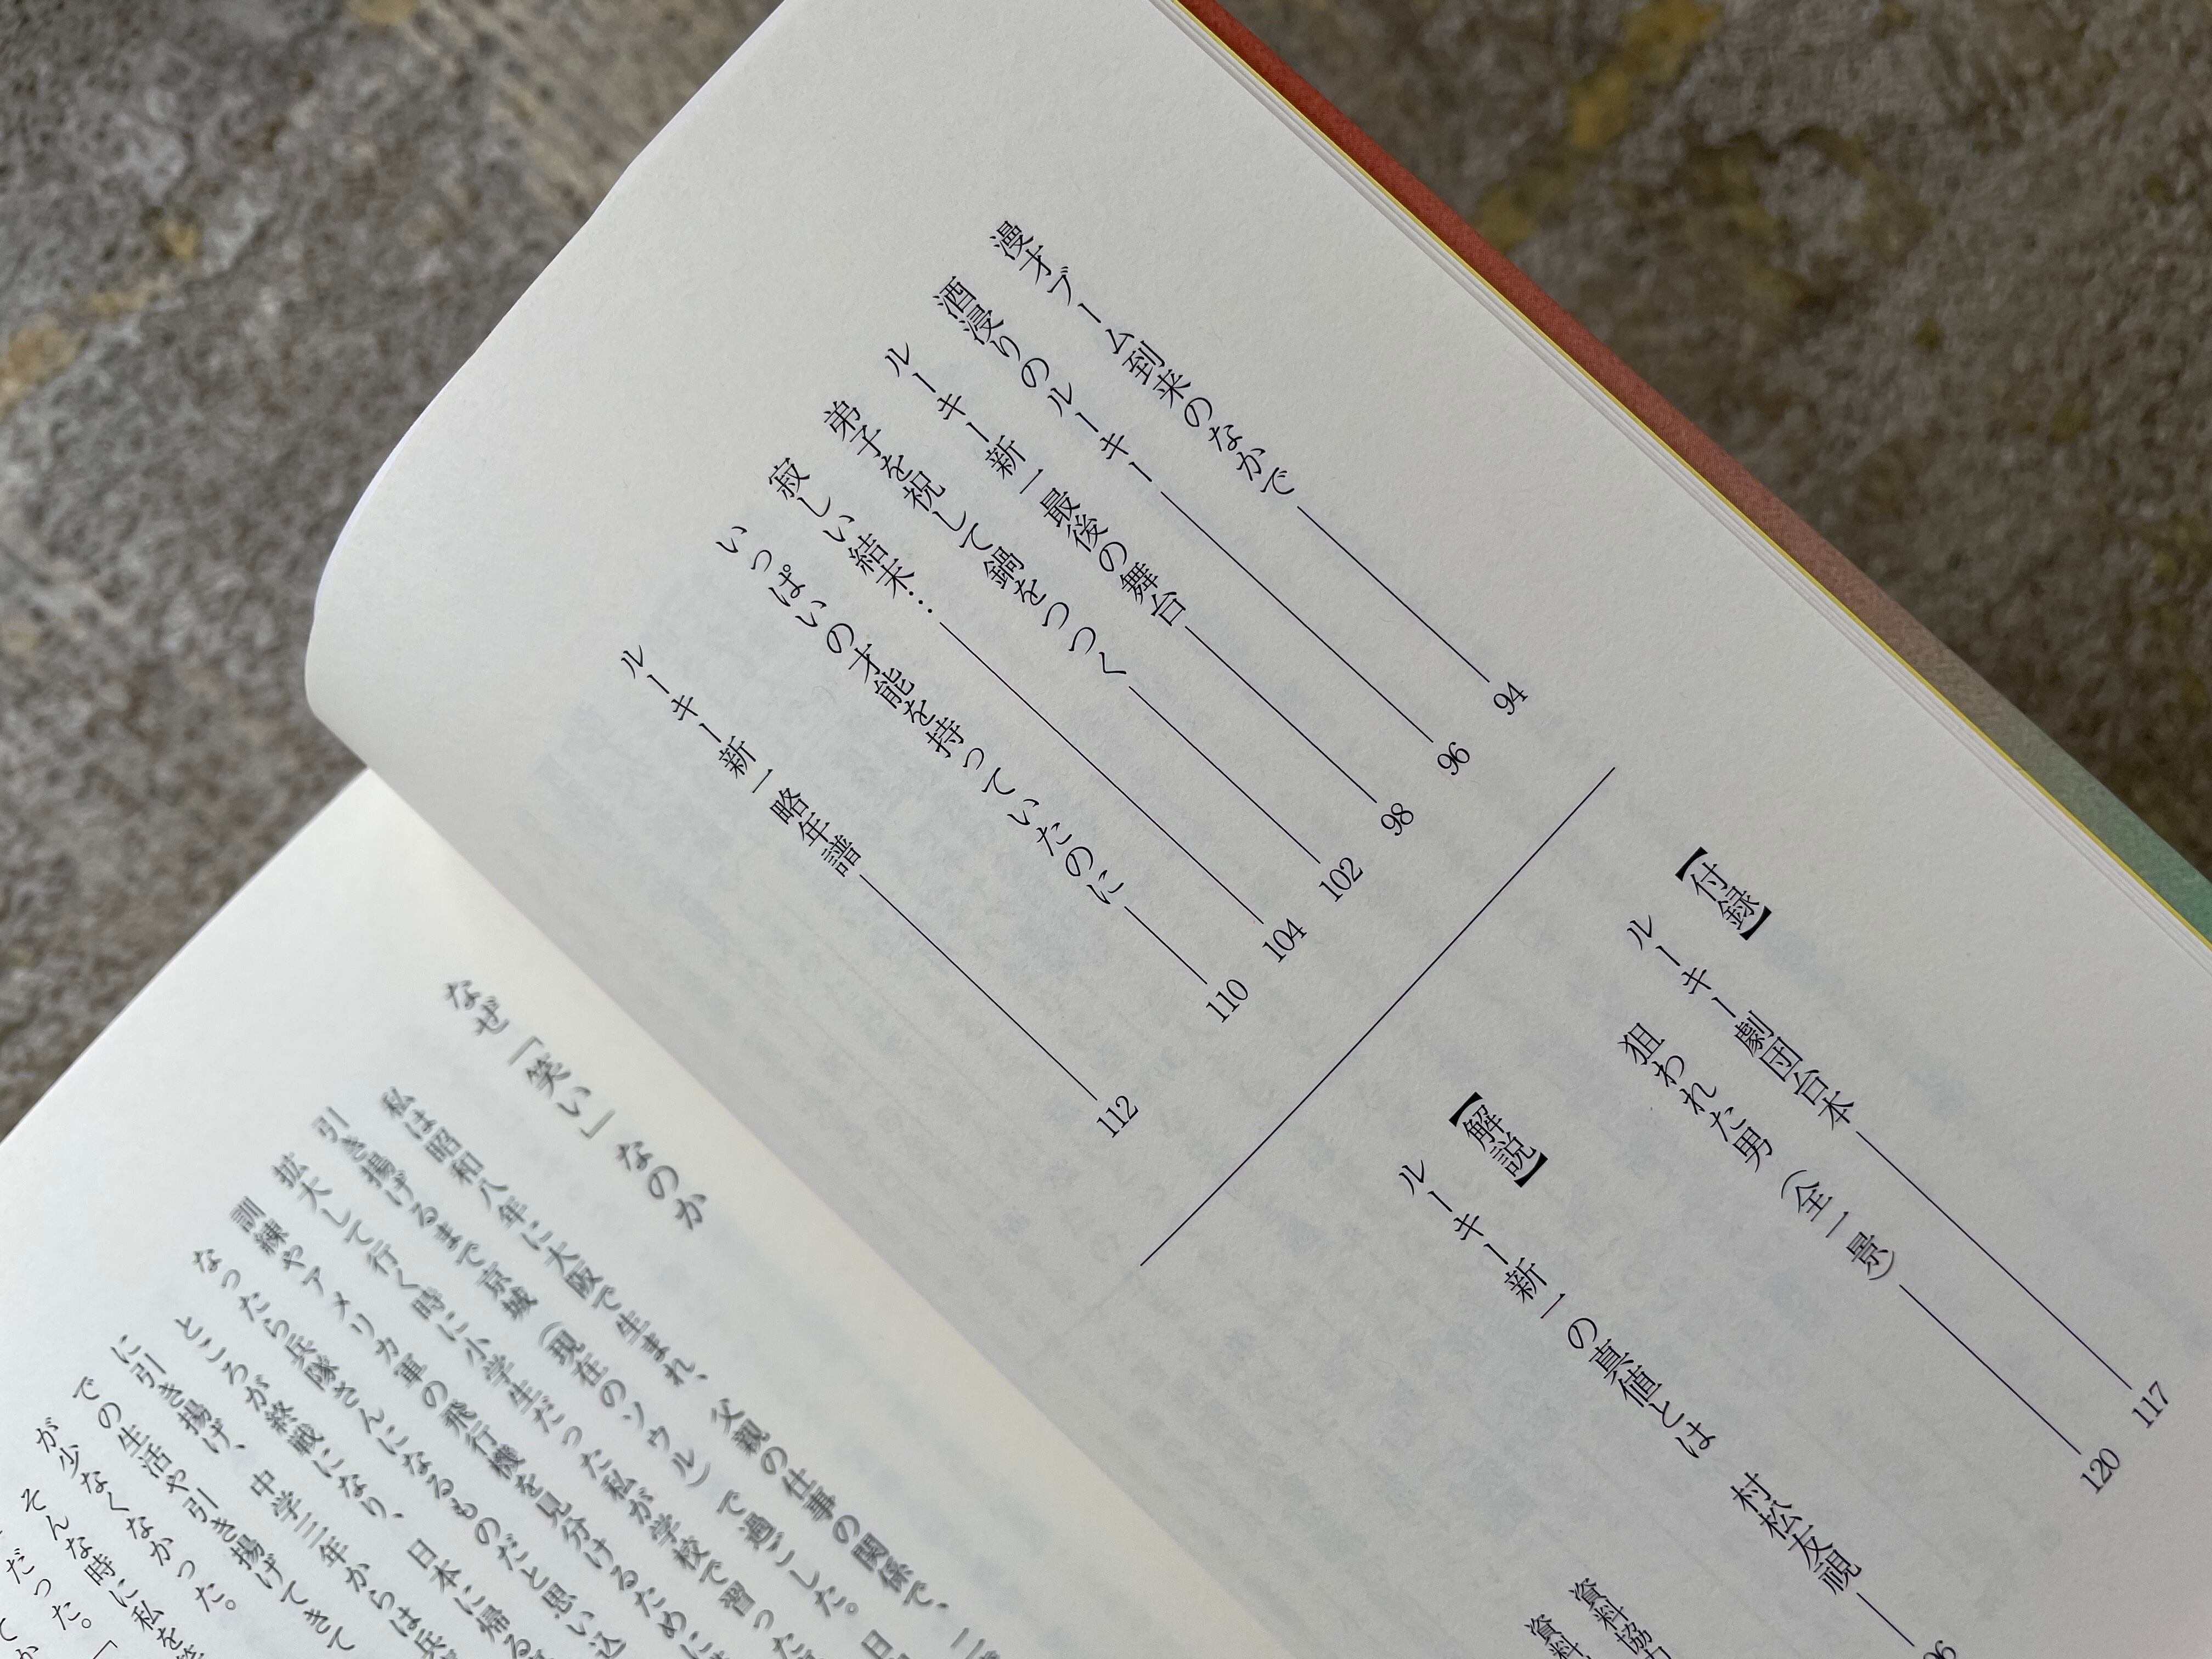 漫才ブーム到来のなかで 94
酒浸りのルーキー 96
ルーキー新一最後の舞台 98
弟子を祝して鍋をつつく 102
寂しい結末… 104
いっぱいの才能を持っていたのに 110
ルーキー新一 略年譜 112
【付録】
ルーキー劇団台本 117
狙われた男（全一景） 120
【解説】
ルーキー新一の真価とは 村松友視
資料協力
資料
なぜ「笑い」なのか
私は昭和八年に大阪で生まれ、父親の仕事の関係で、
引き揚げるまで京城（現在のソウル）で過ごした。日
拡大して行く時に小学生だった私が学校で習った
訓練やアメリカ軍の飛行機を見分けるために
なったら兵隊さんになるものだと思い込
ところが終戦になり、日本に帰る
に引き揚げ、中学二年からは兵
での生活や引き揚げてきて
が少なくなかった。
そんな時に私を
だった。「